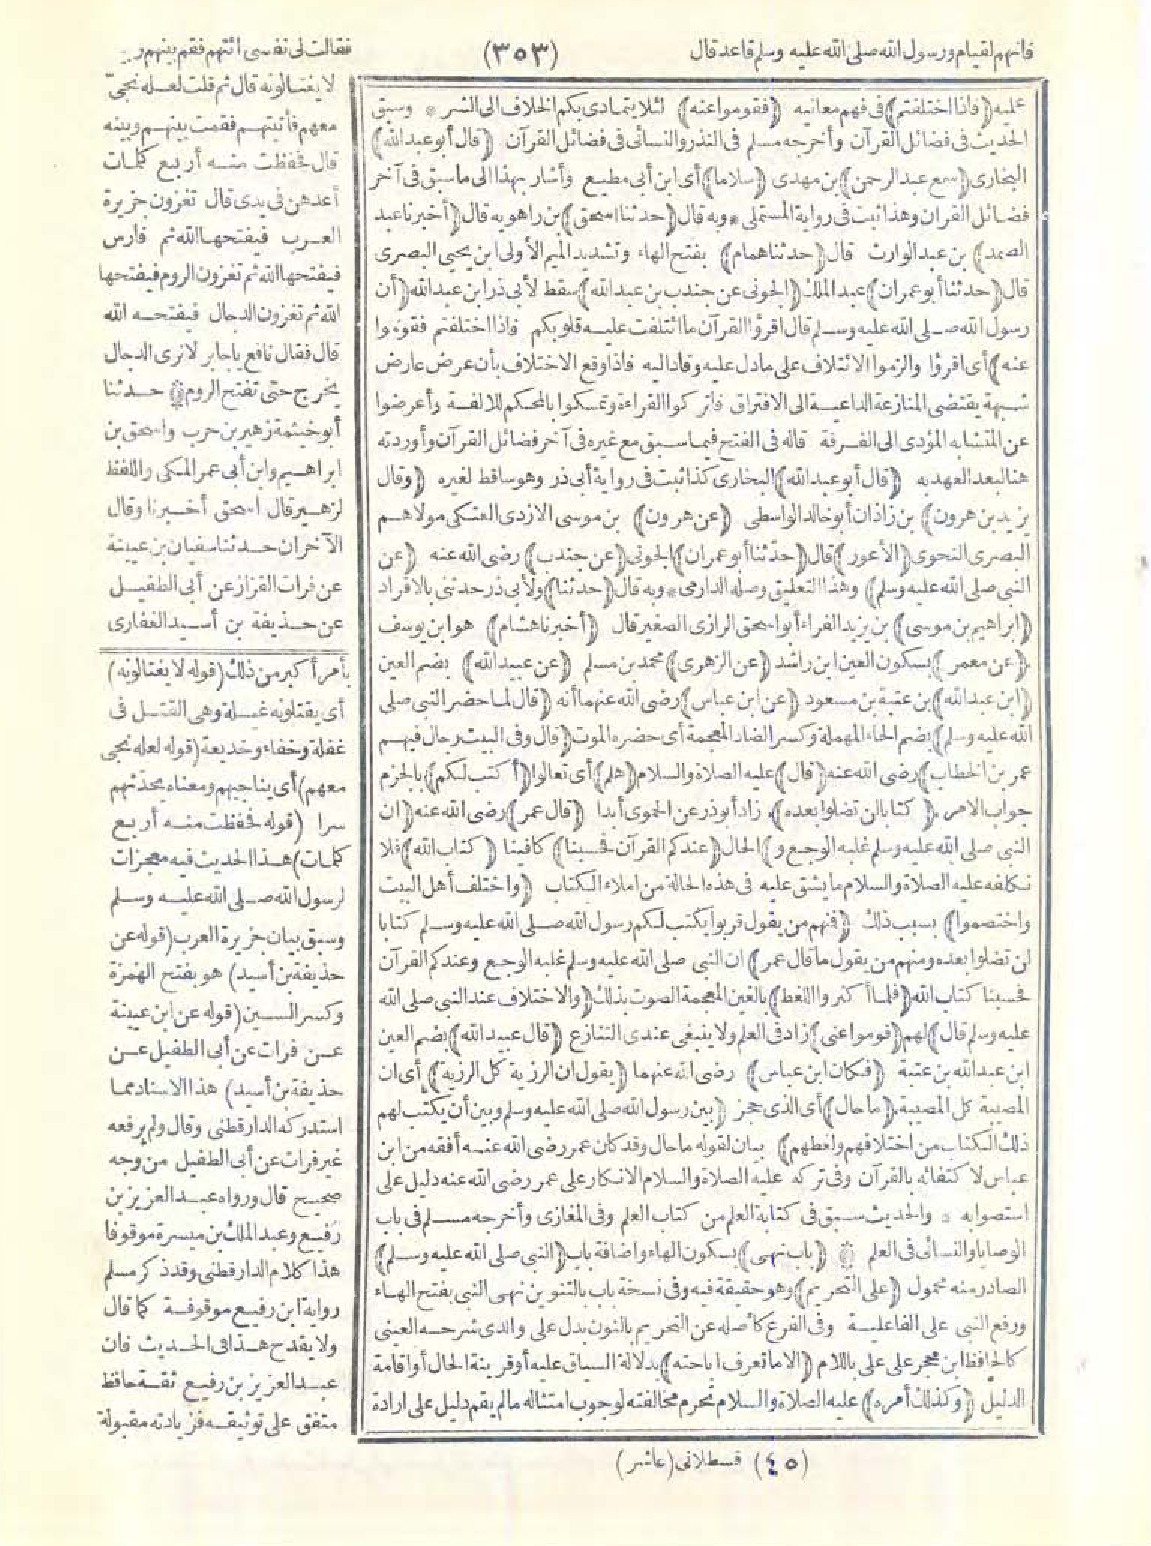 فانهم لقيام ورسول الله صلى الله عليه وسلم قاعد قال
(٣٥٣)
فقالت لى نفسى ائتهم فقم بينهم و
عليه (فاذا اختلفتم) فى فهم معانيه (فقوموا عنه) لئلا يتمادى بكم الخلاف الى الشر * وسبق
الحديث فى فضائل القرآن وأخرجه مسلم فى النذر والنسائى فى فضائل القرآن (قال أبو عبد الله)
البخارى (سمع عبد الرحمن) بن مهدى (سلاما) أى ابن أبى مطيع وأشار بهذا الى ما سبق فى آخر
فضائل القرآن وهذا ثبت فى رواية المستملى * وبه قال (حدثنا اسحق) بن راهويه قال (أخبرنا عبد
الصمد) بن عبد الوارث قال (حدثنا همام) بفتح الهاء وتشديد الميم الأولى ابن يحيى البصرى
قال (حدثنا أبو عمران) عبد الملك (الجونى عن جندب بن عبد الله) سقط لأبى ذر ابن عبد الله (أن
رسول الله صلى الله عليه وسلم قال اقرؤا القرآن ما ائتلفت عليه قلوبكم فاذا اختلفتم فقوموا
عنه) أى اقرؤا والزموا الائتلاف على مادل عليه وقاد اليه فاذا وقع الاختلاف بأن عرض عارض
شبهة يقتضى المنازعة الداعية الى الافتراق فاتركوا القراءة وتمسكوا بالمحكم للالفة وأعرضوا
عن المتشابه المؤدى الى الفرقة قاله فى الفتح فيما سبق مع غيره فى آخر فضائل القرآن وأوردته
هنا لبعد العهد به (قال أبو عبد الله) البخارى كذا ثبت فى رواية أبى ذر وهو ساقط لغيره (وقال
يزيد بن هرون) بن زاذان أبو خالد الواسطى (عن هرون) بن موسى الازدى العتكى مولاهم
البصرى النحوى (الأعور) قال (حدثنا أبو عمران) الجونى (عن جندب) رضى الله عنه (عن
النبى صلى الله عليه وسلم) وهذا التعليق وصله الدارمى * وبه قال (حدثنا) ولأبى ذر حدثنى بالافراد
(ابراهيم بن موسى) بن يزيد الفراء أبو اسحق الرازى الصغير قال (أخبرنا هشام) هو ابن يوسف
(عن معمر) بسكون العين ابن راشد (عن الزهرى) محمد بن مسلم (عن عبيد الله) بضم العين
(ابن عبد الله) بن عتبة بن مسعود (عن ابن عباس) رضى الله عنهما أنه (قال لما حضر النبى صلى
الله عليه وسلم) بضم الحاء المهملة وكسر الضاد المعجمة أى حضره الموت (قال وفى البيت رجال فيهم
عمر بن الخطاب) رضى الله عنه (قال) عليه الصلاة والسلام (هلم) أى تعالوا (أكتب لكم) بالجزم
جواب الامر (كتابا لن تضلوا بعده) زاد أبو ذر عن الحموى أبدا (قال عمر) رضى الله عنه (ان
النبى صلى الله عليه وسلم غلبه الوجع و) الحال (عندكم القرآن فحسبنا) كافينا (كتاب الله) فلا
نكلفه عليه الصلاة والسلام ما يشق عليه فى هذه الحالة من املاء الكتاب (واختلف أهل البيت
واختصموا) بسبب ذلك (فمنهم من يقول قربوا يكتب لكم رسول الله صلى الله عليه وسلم كتابا
لن تضلوا بعده ومنهم من يقول ما قال عمر) ان النبى صلى الله عليه وسلم غلبه الوجع وعندكم القرآن
فحسبنا كتاب الله (فلما أكثروا اللغط) بالغين المعجمة الصوت بذلك (والاختلاف عند النبى صلى الله
عليه وسلم قال) لهم (قوموا عنى) زاد فى العلم ولا ينبغى عندى التنازع (قال عبيد الله) بضم العين
ابن عبد الله بن عتبة (فكان ابن عباس) رضى الله عنهما (يقول ان الرزية كل الرزية) أى ان
المصيبة كل المصيبة (ما حال) أى الذى حجز (بين رسول الله صلى الله عليه وسلم وبين أن يكتب لهم
ذلك الكتاب من اختلافهم ولغطهم) بيان لقوله ما حال وقد كان عمر رضى الله عنه أفقه من ابن
عباس لاكتفائه بالقرآن وفى تركه عليه الصلاة والسلام الانكار على عمر رضى الله عنه دليل على
استصوابه * والحديث سبق فى كتابة العلم من كتاب العلم وفى المغازى وأخرجه مسلم فى باب
الوصايا والنسائى فى العلم * (باب نهى) بسكون الهاء واضافة باب (النبى صلى الله عليه وسلم)
الصادر منه محمول (على التحريم) وهو حقيقة فيه وفى نسخة باب بالتنوين نهى النبى بفتح الهاء
ورفع النبى على الفاعلية وفى الفرع كأصله عن التحريم بالنون بدل على والذى شرحه العينى
كالحافظ ابن حجر على على باللام (الا ما تعرف اباحته) بدلالة السياق عليه أو قرينة الحال أو اقامة
الدليل (وكذلك أمره) عليه الصلاة والسلام تحرم مخالفته لوجوب امتثاله ما لم يقم دليل على ارادة
لا يغتالونه قال ثم قلت لعله نجى
معهم فأتيتهم فقمت بينهم وبينه
قال فحفظت منه أربع كلمات
أعدهن فى يدى قال تغزون جزيرة
العرب فيفتحها الله ثم فارس
فيفتحها الله ثم تغزون الروم فيفتحها
الله ثم تغزون الدجال فيفتحه الله
قال فقال نافع يا جابر لا نرى الدجال
يخرج حتى تفتح الروم * حدثنا
أبو خيثمة زهير بن حرب واسحق بن
ابراهيم وابن أبى عمر المكى واللفظ
لزهير قال اسحق أخبرنا وقال
الآخران حدثنا سفيان بن عيينة
عن فرات القزاز عن أبى الطفيل
عن حذيفة بن أسيد الغفارى
بأمر أكبر من ذلك (قوله لا يغتالونه)
أى يقتلونه غيلة وهى القتل فى
غفلة وخفاء وخديعة (قوله لعله نجى
معهم) أى يناجيهم ومعناه يحدثهم
سرا (قوله فحفظت منه أربع
كلمات) هذا الحديث فيه معجزات
لرسول الله صلى الله عليه وسلم
وسبق بيان جزيرة العرب (قوله عن
حذيفة بن أسيد) هو بفتح الهمزة
وكسر السين (قوله عن ابن عيينة
عن فرات عن أبى الطفيل عن
حذيفة بن أسيد) هذا الاسناد مما
استدركه الدارقطنى وقال ولم يرفعه
غير فرات عن أبى الطفيل من وجه
صحيح قال ورواه عبد العزيز بن
رفيع وعبد الملك بن ميسرة موقوفا
هذا كلام الدارقطنى وقد ذكر مسلم
رواية ابن رفيع موقوفة كما قال
ولا يقدح هذا فى الحديث فان
عبد العزيز بن رفيع ثقة حافظ
متفق على توثيقه فزيادته مقبولة
(٤٥) قسطلانى (عاشر)